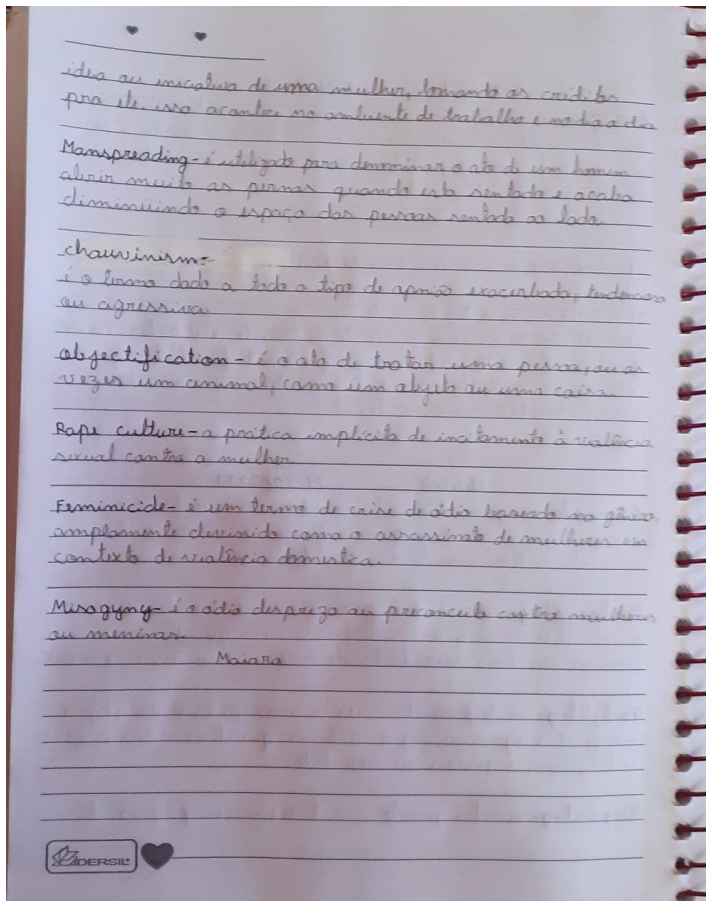 ideia ou iniciativa de uma mulher, tomando os créditos
pra ele. isso acontece no ambiente de trabalho e no dia a dia
Manspreading - é utilizado para denominar o ato de um homem
abrir muito as pernas quando esta sentado e acaba
diminuindo o espaço das pessoas sentada ao lado.
chauvinism:-
é o termo dado a todo o tipo de opnião exacerbada, tendenciosa
ou agressiva.
objectification - é o ato de tratar uma pessoa, ou as
vezes um animal, como um objeto ou uma coisa.
Rape culture - a prática implícita de incitamento à violência
sexual contra a mulher.
Feminicide - é um termo de crise de ódio baseado no gênero,
amplamente devinido como o assassinato de mulheres em
contexto de violência domestica.
Misogyny - é o ódio desprezo ou preconceito contra mulheres
ou meninas.
Maiara
IDERSIL